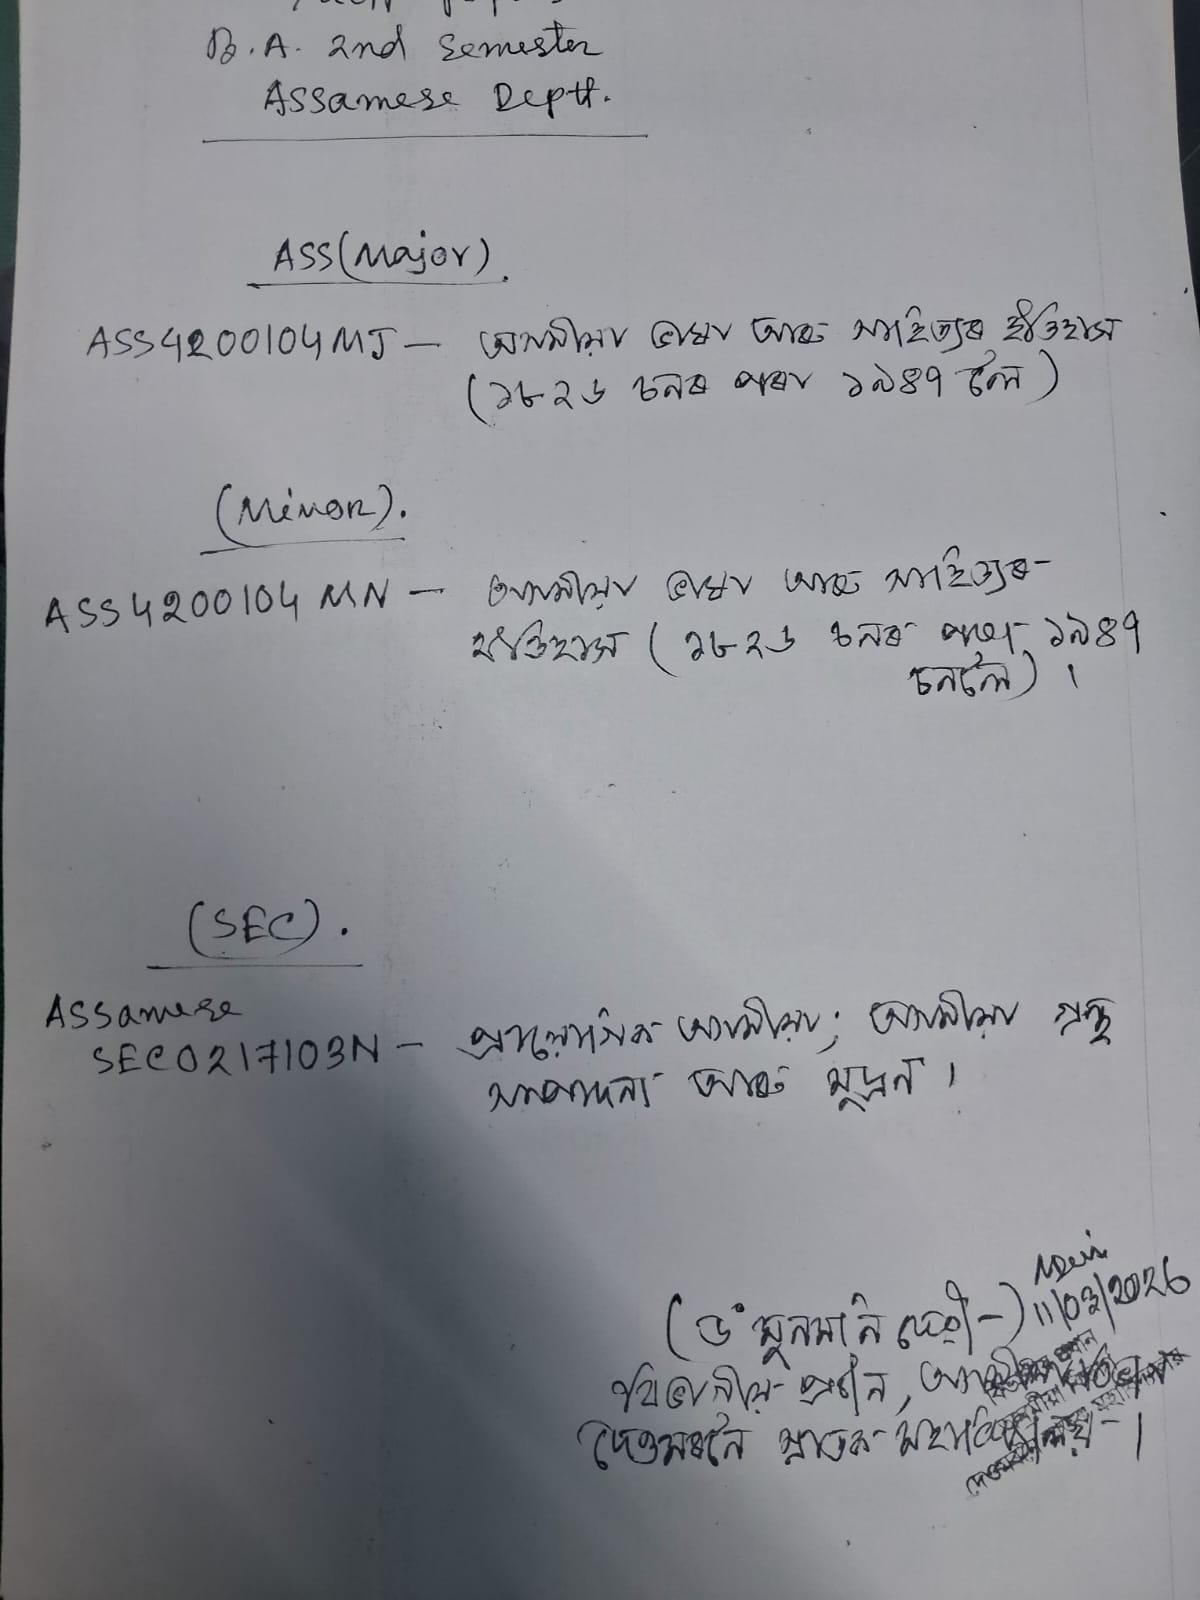 B.A. 2nd Semester
Assamese Deptt.
ASS(Major).
ASS4200104MJ — অসমীয়া ভাষা আৰু সাহিত্যৰ ইতিহাস
(১৮২৬ চনৰ পৰা ১৯৪৭ লৈ)
(Minor).
ASS4200104MN — অসমীয়া ভাষা আৰু সাহিত্যৰ
ইতিহাস (১৮২৬ চনৰ পৰা ১৯৪৭
চনলৈ)।
(SEC).
Assamese
SEC0217103N — প্ৰায়োগিক অসমীয়া; অসমীয়া গ্ৰন্থ
সম্পাদনা আৰু মুদ্ৰন।
11/03/2026
(ড° মুনমনি দেৱী)
বিভাগীয় প্ৰধান, অসমীয়া বিভাগ
দেওমৰনৈ স্নাতক মহাবিদ্যালয়।